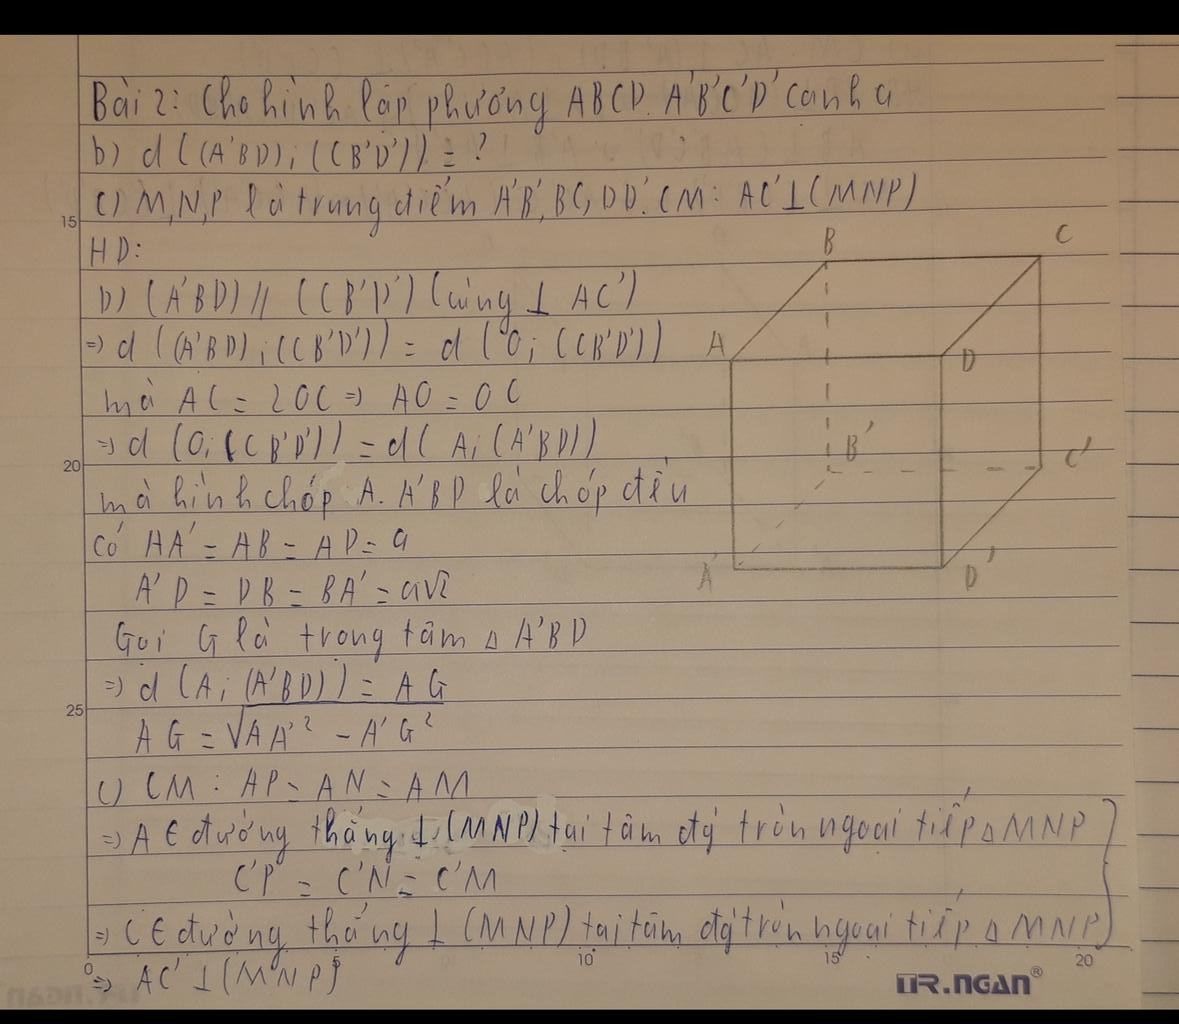 Bài 2: Cho hình lập phương ABCD.A'B'C'D' cạnh a
b) d((A'BD); (CB'D')) = ?
c) M, N, P là trung điểm A'B', BC, DD'. CM: AC' ⊥ (MNP)
HD:
b) (A'BD) // (CB'D') (cùng ⊥ AC')
=> d((A'BD); (CB'D')) = d(O; (CB'D'))
mà AC = 2OC => AO = OC
=> d(O; (CB'D')) = d(A; (A'BD))
mà hình chóp A.A'BD là chóp đều
có AA' = AB = AD = a
A'D = DB = BA' = a√2
Gọi G là trọng tâm Δ A'BD
=> d(A; (A'BD)) = AG
AG = √AA'² - A'G²
c) CM: AP = AN = AM
=> A ∈ đường thẳng ⊥ (MNP) tại tâm đg tròn ngoại tiếp Δ MNP
C'P = C'N = C'M
=> C ∈ đường thẳng ⊥ (MNP) tại tâm đg tròn ngoại tiếp Δ MNP
=> AC' ⊥ (MNP)
B
C
A
D
B'
C'
A'
D'
15
20
25
0
5
10
15
20
TR.NGAN®